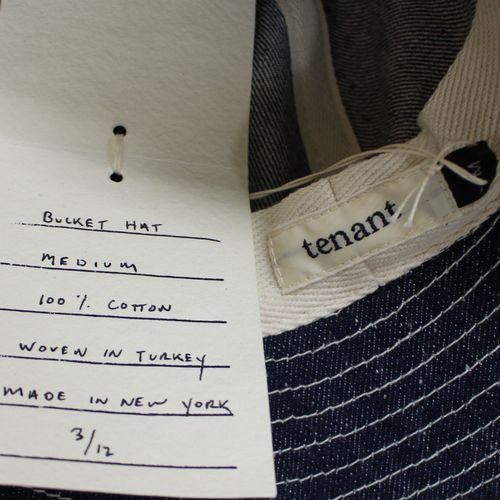 BUCKET HAT
MEDIUM
100% COTTON
WOVEN IN TURKEY
MADE IN NEW YORK
3/12
tenant
M